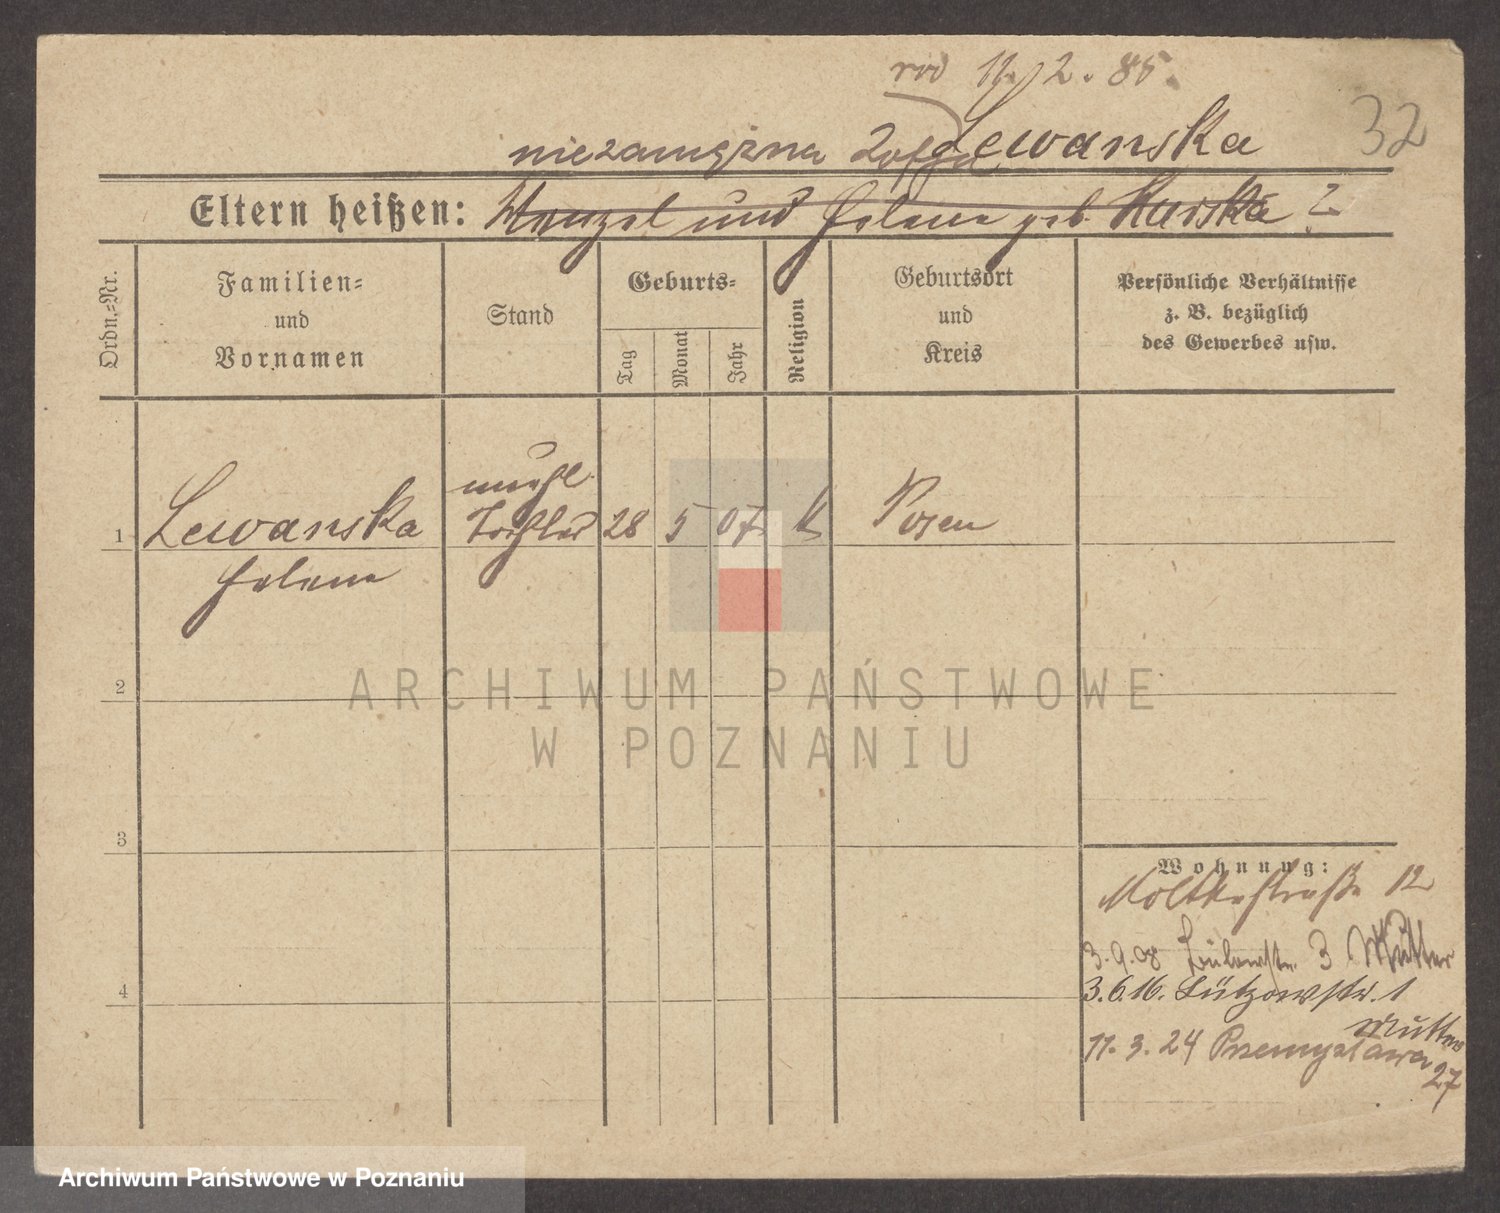 rod 17/2. 85.
niezamężna Zofja Lewanska
32
Eltern heißen: Wenzel und Helene geb. Kurska ?
Ordn.-Nr.
Familien-
und
Vornamen
Stand
Geburts-
Tag
Monat
Jahr
Religion
Geburtsort
und
Kreis
Persönliche Verhältnisse
z. B. bezüglich
des Gewerbes usw.
unehl.
1 Lewanska Tochter 28 5 07. k Posen
Helene
2
ARCHIWUM PAŃSTWOWE
W POZNANIU
3
Wohnung:
Moltkestraße 12
3.9.08 3 Mutter
4
3.6.16. Lützowstr. 1
Mutter
11.3.24 Przemysława
27
Archiwum Państwowe w Poznaniu